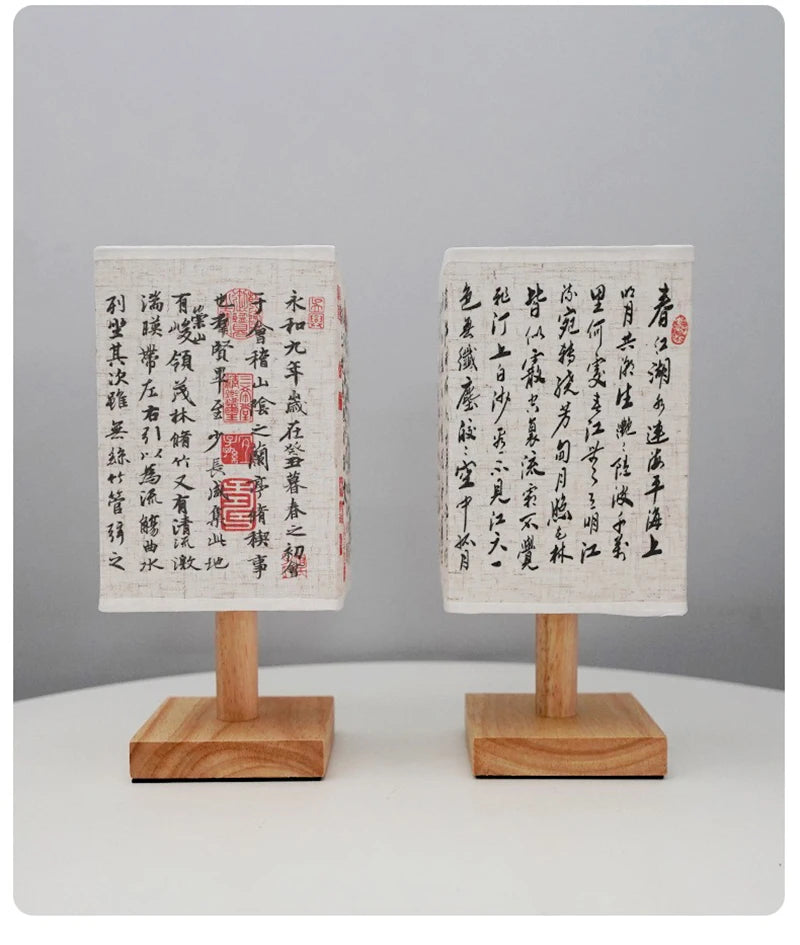 永和九年歲在癸丑暮春之初會
于會稽山陰之蘭亭脩稧事
也羣賢畢至少長咸集此地
有崇山峻領茂林脩竹又有清流激
湍暎帶左右引以為流觴曲水
列坐其次雖無絲竹管弦之
春江潮水連海平海上
明月共潮生灔〻隨波千萬
里何處春江無月明江
流宛轉繞芳甸月照花林
皆似霰空裏流霜不覺
飛汀上白沙看不見江天一
色無纖塵皎〻空中孤月